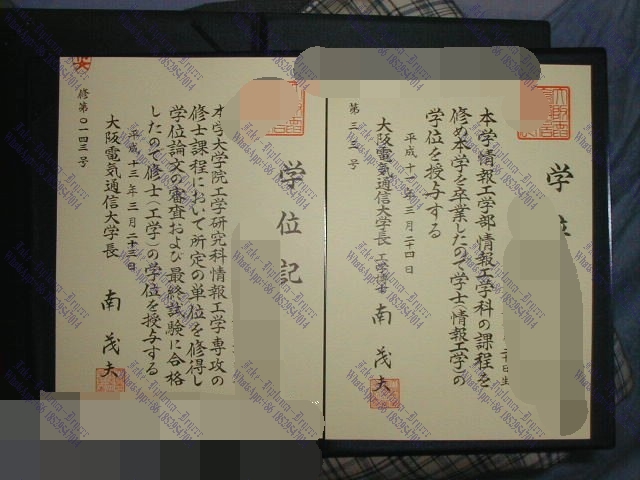 学
日生
本学情報工学部情報工学科の課程を
修め本学を卒業したので学士(情報工学)の
学位を授与する
平成十一年三月二十四日
大阪電気通信大学長 工学博士 南 茂夫
第三三号
学位記
本学大学院工学研究科情報工学専攻の
修士課程において所定の単位を修得し
学位論文の審査および最終試験に合格
したので修士(工学)の学位を授与する
平成十三年三月二十三日
大阪電気通信大学長 南 茂夫
修第〇一四三号